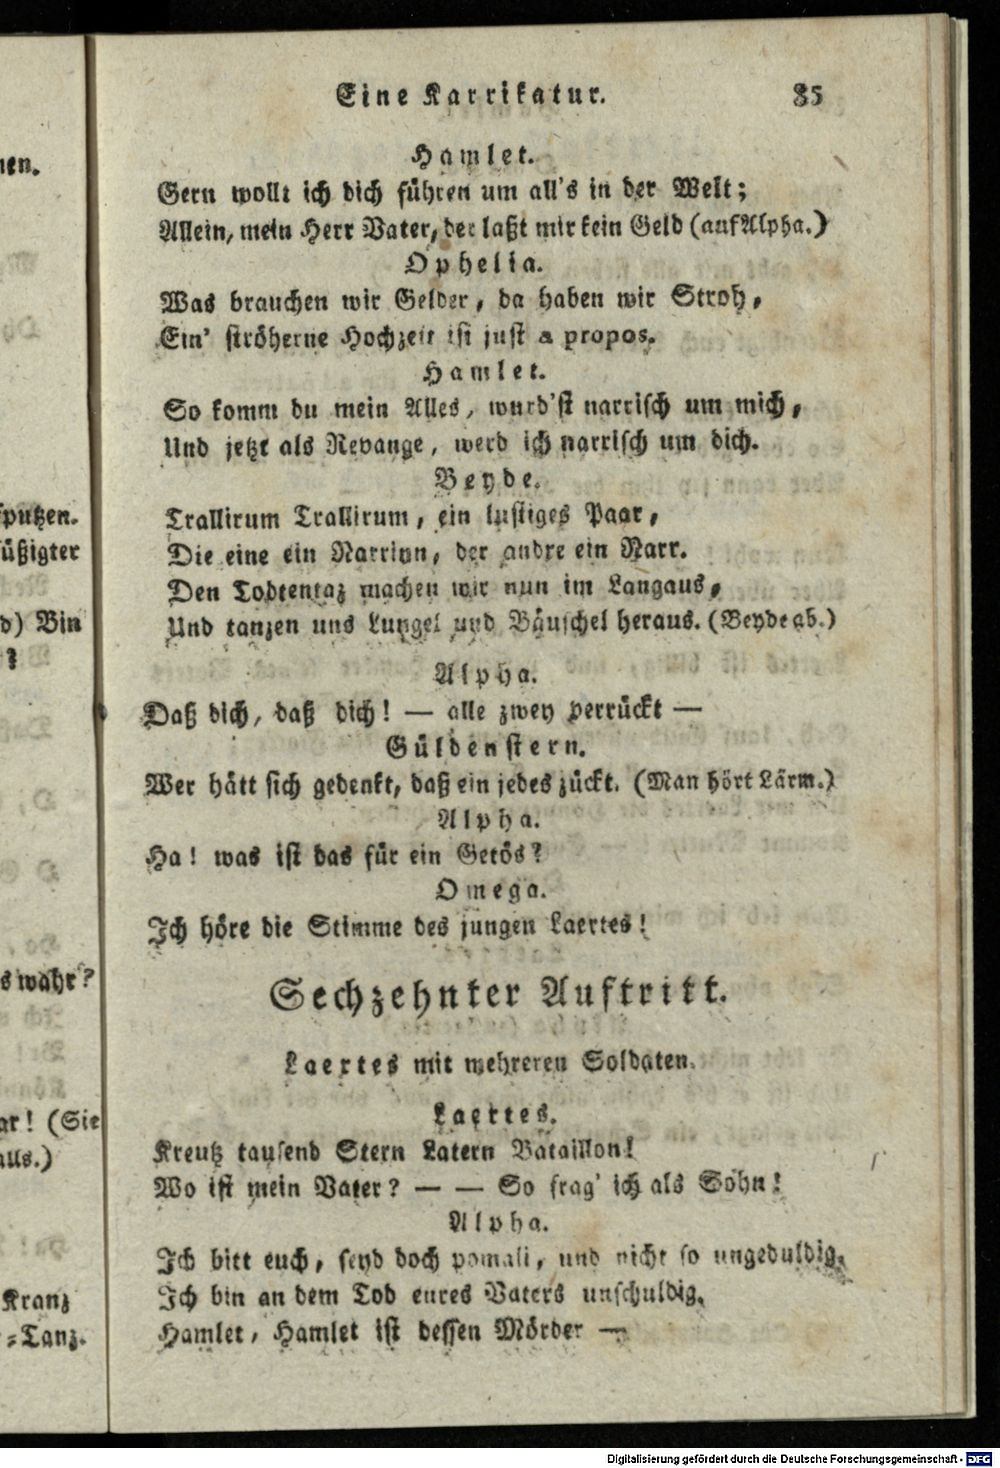 Eine Karrikatur. 85
Hamlet.
Gern wollt ich dich führen um all's in der Welt;
Allein, mein Herr Vater, der laßt mir kein Geld (auf Alpha.)
Ophelia.
Was brauchen wir Gelder, da haben wir Stroh,
Ein' ströherne Hochzeit ist just a propos.
Hamlet.
So komm du mein Alles, wurd'st narrisch um mich,
Und jetzt als Revange, werd ich narrisch um dich.
Beyde.
Trallirum Trallirum, ein lustiges Paar,
Die eine ein Narrinn, der andre ein Narr.
Den Todtentaz machen wir nun im Langaus,
Und tanzen uns Lungel und Bäuschel heraus. (Beyde ab.)
Alpha.
Daß dich, daß dich! — alle zwey verrückt —
Güldenstern.
Wer hätt sich gedenkt, daß ein jedes zückt. (Man hört Lärm.)
Alpha.
Ha! was ist das für ein Getös?
Omega.
Ich höre die Stimme des jungen Laertes!
Sechzehnter Auftritt.
Laertes mit mehreren Soldaten.
Laertes.
Kreutz tausend Stern Latern Bataillon!
Wo ist mein Vater? — — So frag' ich als Sohn!
Alpha.
Ich bitt euch, seyd doch pomali, und nicht so ungeduldig,
Ich bin an dem Tod eures Vaters unschuldig,
Hamlet, Hamlet ist dessen Mörder —
nen.
sputzen.
üßigter
d) Bin
?
s wahr?
ar! (Sie
alls.)
Kranz
=Tanz.
Digitalisierung gefördert durch die Deutsche Forschungsgemeinschaft - DFG